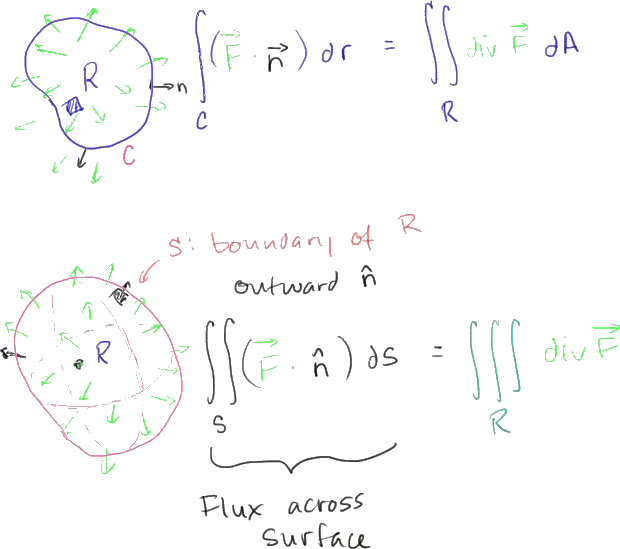 R
n
C
∫_C (F⃗ · n⃗) dr = ∬_R div F⃗ dA
S: boundary of R
outward n̂
R
∬_S (F⃗ · n̂) dS = ∭_R div F⃗
Flux across
surface